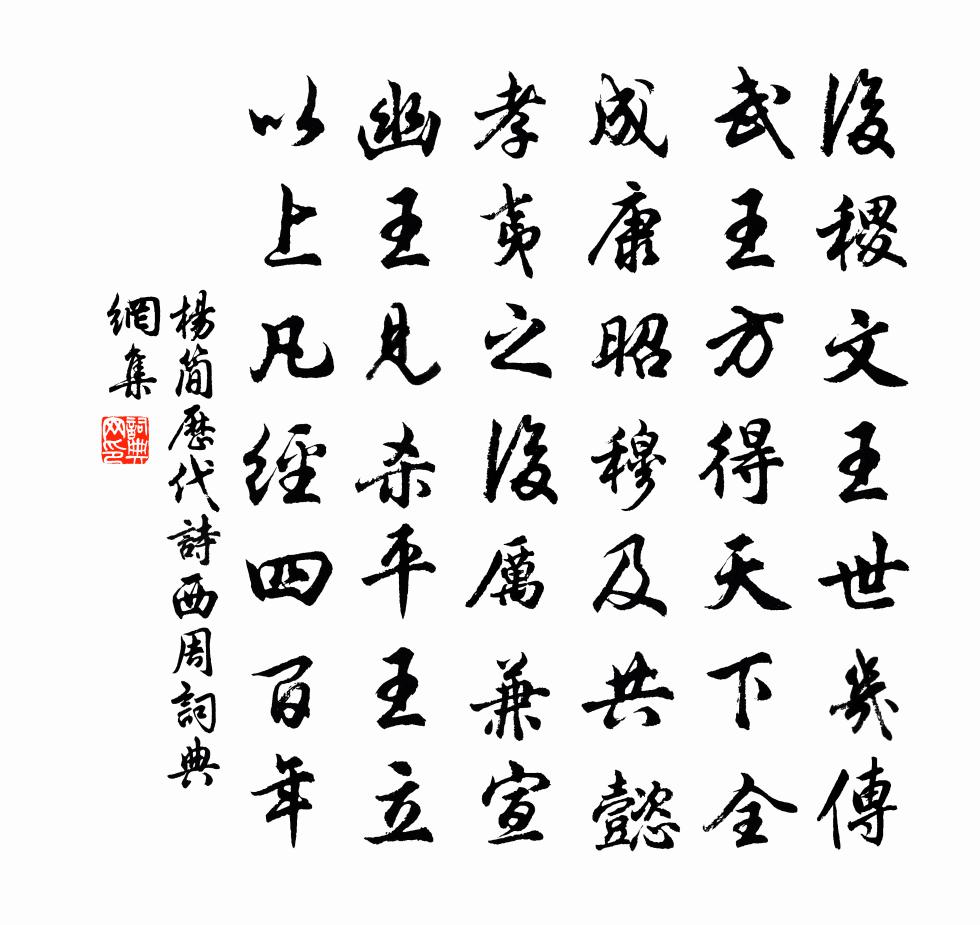 後稷文王世幾傳
武王方得天下全
成康昭穆及共懿
孝夷之後厲兼宣
幽王見殺平王立
以上凡經四百年
楊簡歷代詩西周詞典
網集
詞典
网印